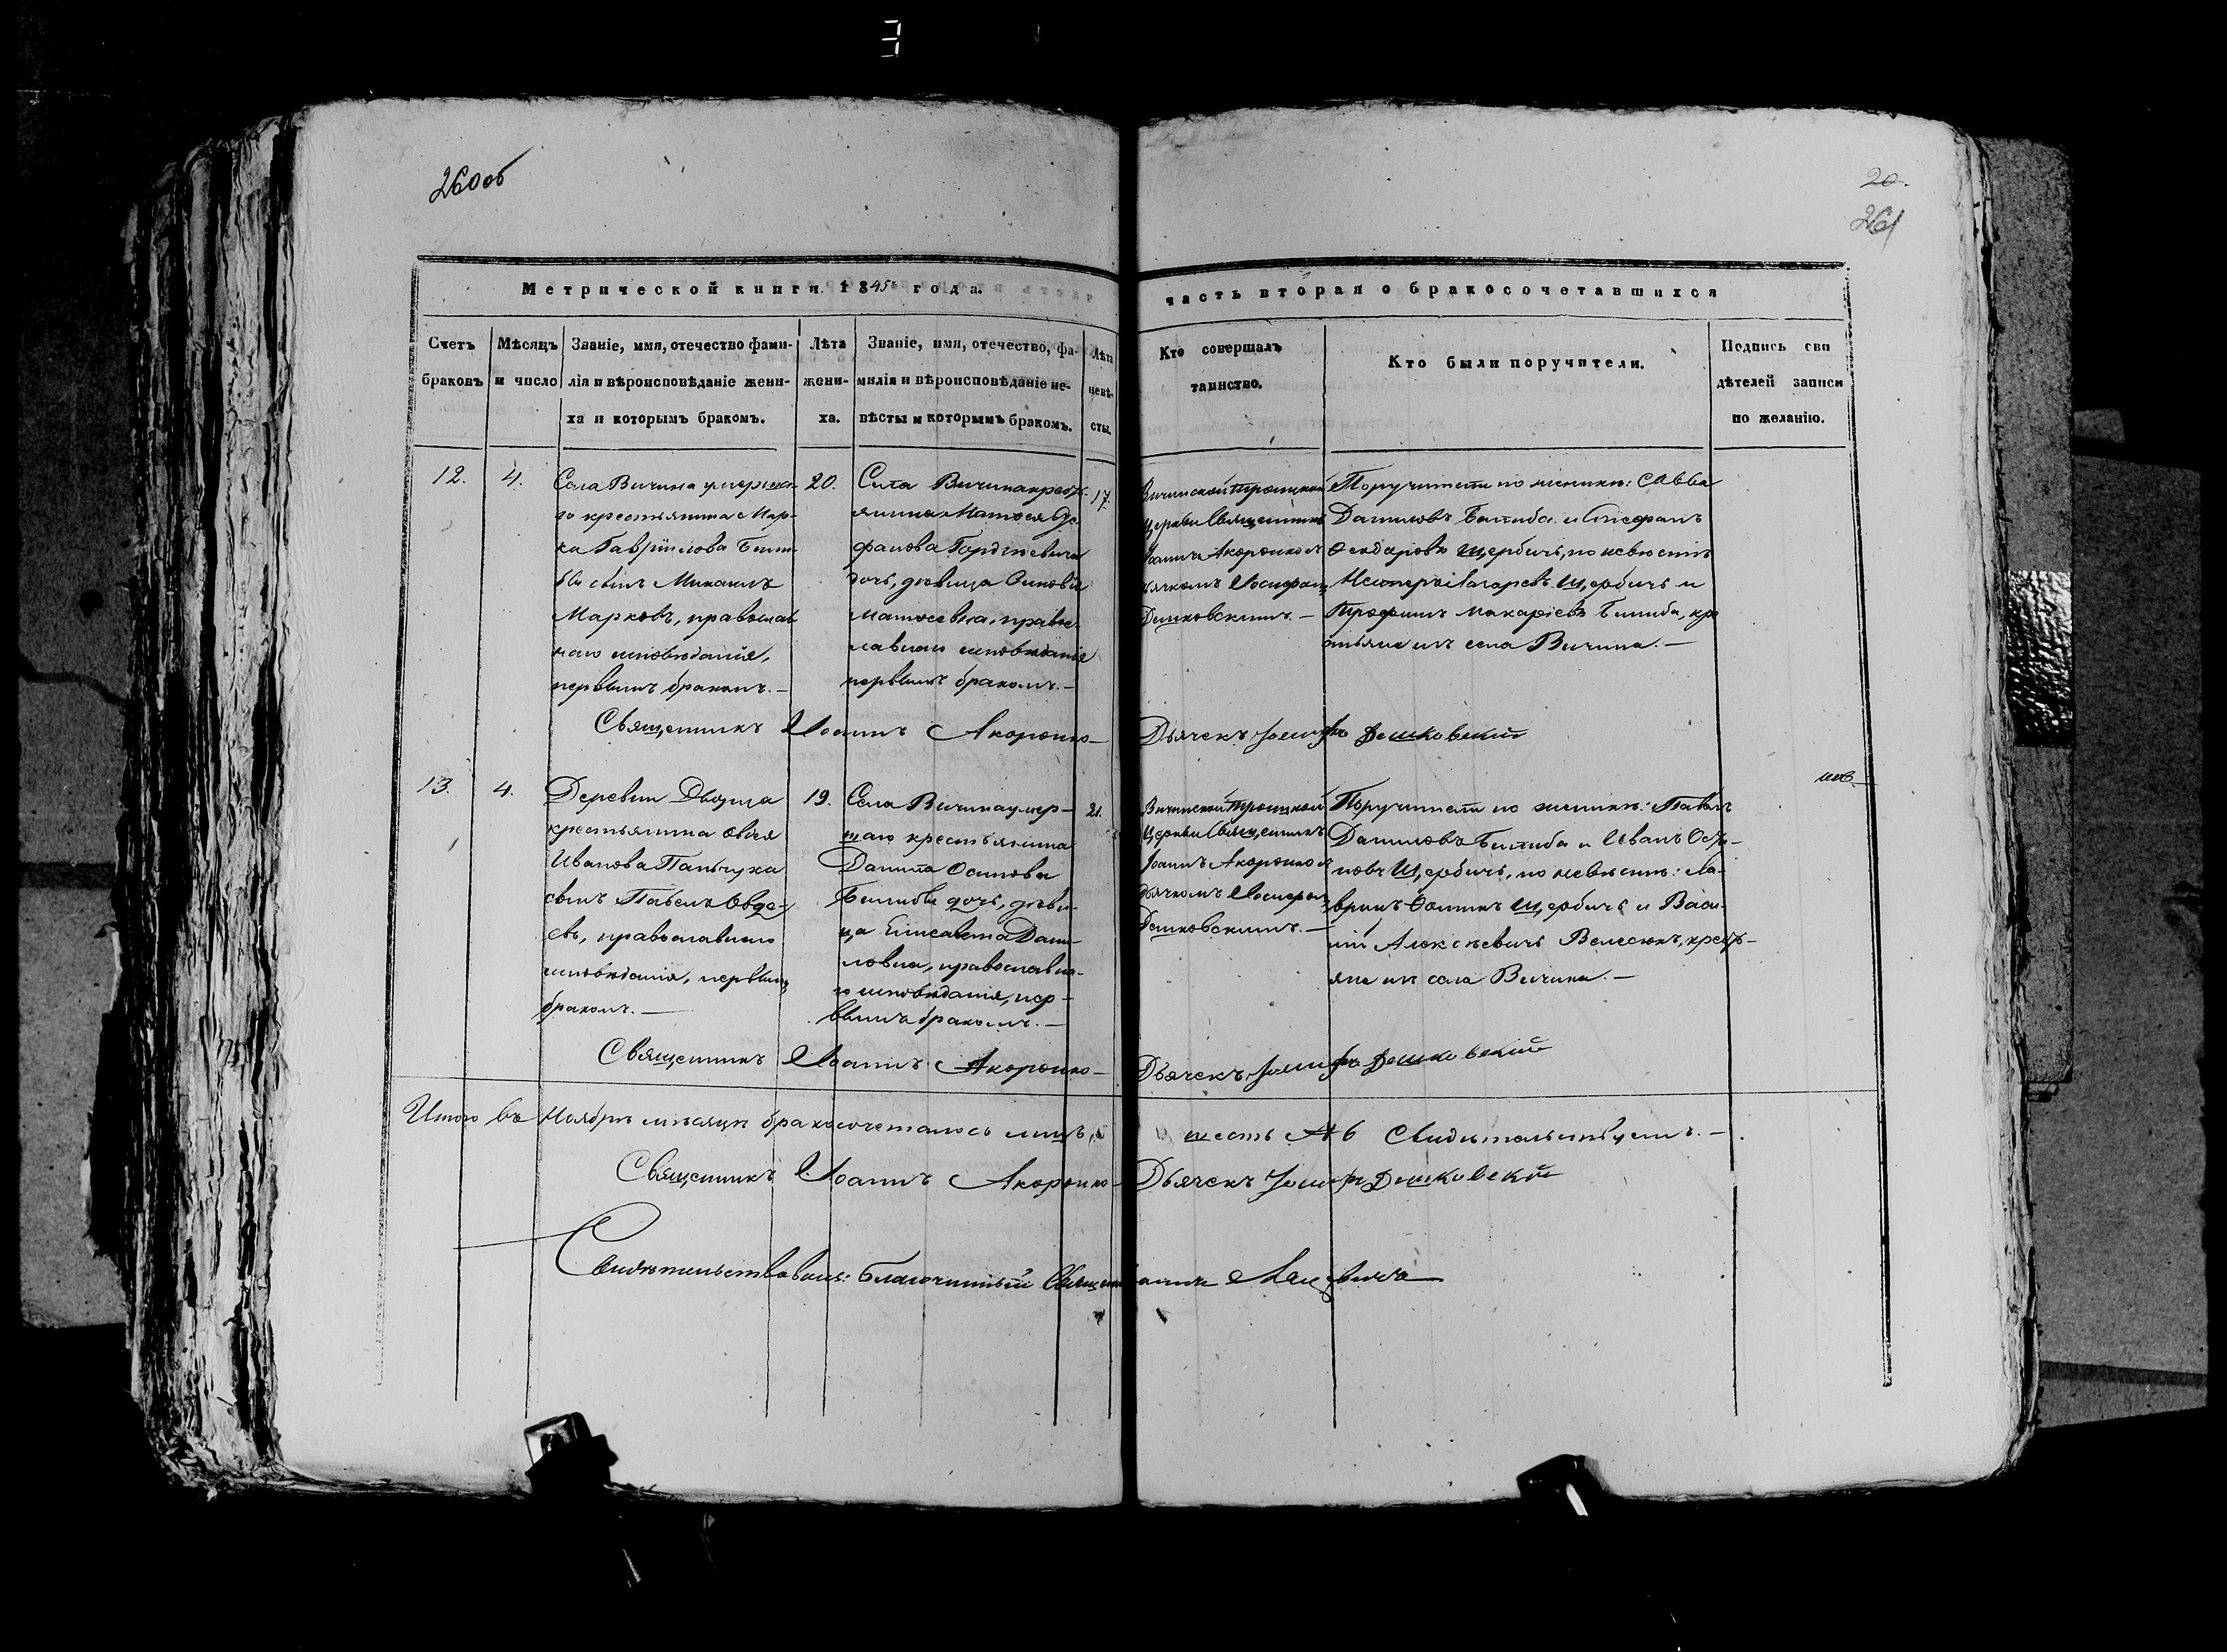 260 об
20.
261
Метрической книги 1845 года.
часть вторая о бракосочетавшихся
Счетъ браковъ
Мѣсяцъ и число
Званіе, имя, отечество фами-
лія и вѣроисповѣданіе жени-
ха и которымъ бракомъ.
Лѣта
жени-
ха.
Званіе, имя, отечество, фа-
милія и вѣроисповѣданіе не-
вѣсты и которымъ бракомъ.
Лѣта
невѣ-
сты.
Кто совершалъ
таинство.
Кто были поручители.
Подпись сви
дѣтелей записи
по желанію.
12.
4.
Села Вичина умерша-
го крестьянина Мар-
ка Гавріилова
сынъ Михаилъ
Марковъ, православ
наго исповѣданія,
первымъ бракомъ.—
20.
Села Вичина крестъ-
янина Матөея
фанова Гордіевича
дочь, дѣвица
Матөеевна, правос-
лавнаго исповѣданія
первымъ бракомъ.—
17.
Вичинской Троицкой
Церкви Священникъ
Іоаннъ Акоронко съ
дьячкомъ Іосифомъ
Дешковскимъ.—
Поручители по женихѣ: Савва
Даниловъ и Стефанъ
Өеодоровъ Щербичъ, по невѣстѣ
Щербичъ и
Трофимъ Макаріевъ кре
стьяне изъ села Вичина.—
Священникъ Іоаннъ Акоронко—
Дьячекъ Іосифъ Дешковскій
13.
4.
Деревни Дворца
крестьянина Овдея
Иванова Паньчука
сынъ Павелъ Овде-
евъ, православнаго
исповѣданія, первымъ
бракомъ.—
19.
Села Вичина умер-
шаго крестьянина
Данила Осипова
дочь, дѣви-
ца Елисавета Дани-
ловна, православна-
го исповѣданія, пер-
вымъ бракомъ.—
21.
Вичинской Троицкой
Церкви Священникъ
Іоаннъ Акоронко съ
дьячкомъ Іосифомъ
Дешковскимъ.—
Поручители по женихѣ: Павелъ
Даниловъ и Иванъ Оси-
повъ Щербичъ, по невѣстѣ: Ла-
вринъ Өоминъ Щербичъ и Васи-
лій Алексѣевичъ Велесюкъ, кресть-
яне изъ села Вичина.—
Священникъ Іоаннъ Акоронко—
Дьячекъ Іосифъ Дешковскій
Итого въ Ноябрѣ мѣсяцѣ бракосочеталось лицъ
шесть № 6 Свидѣтельствуемъ.—
Священникъ Іоаннъ Акоронко—
Дьячекъ Іосифъ Дешковскій
Свидѣтельствовалъ: Благочинный